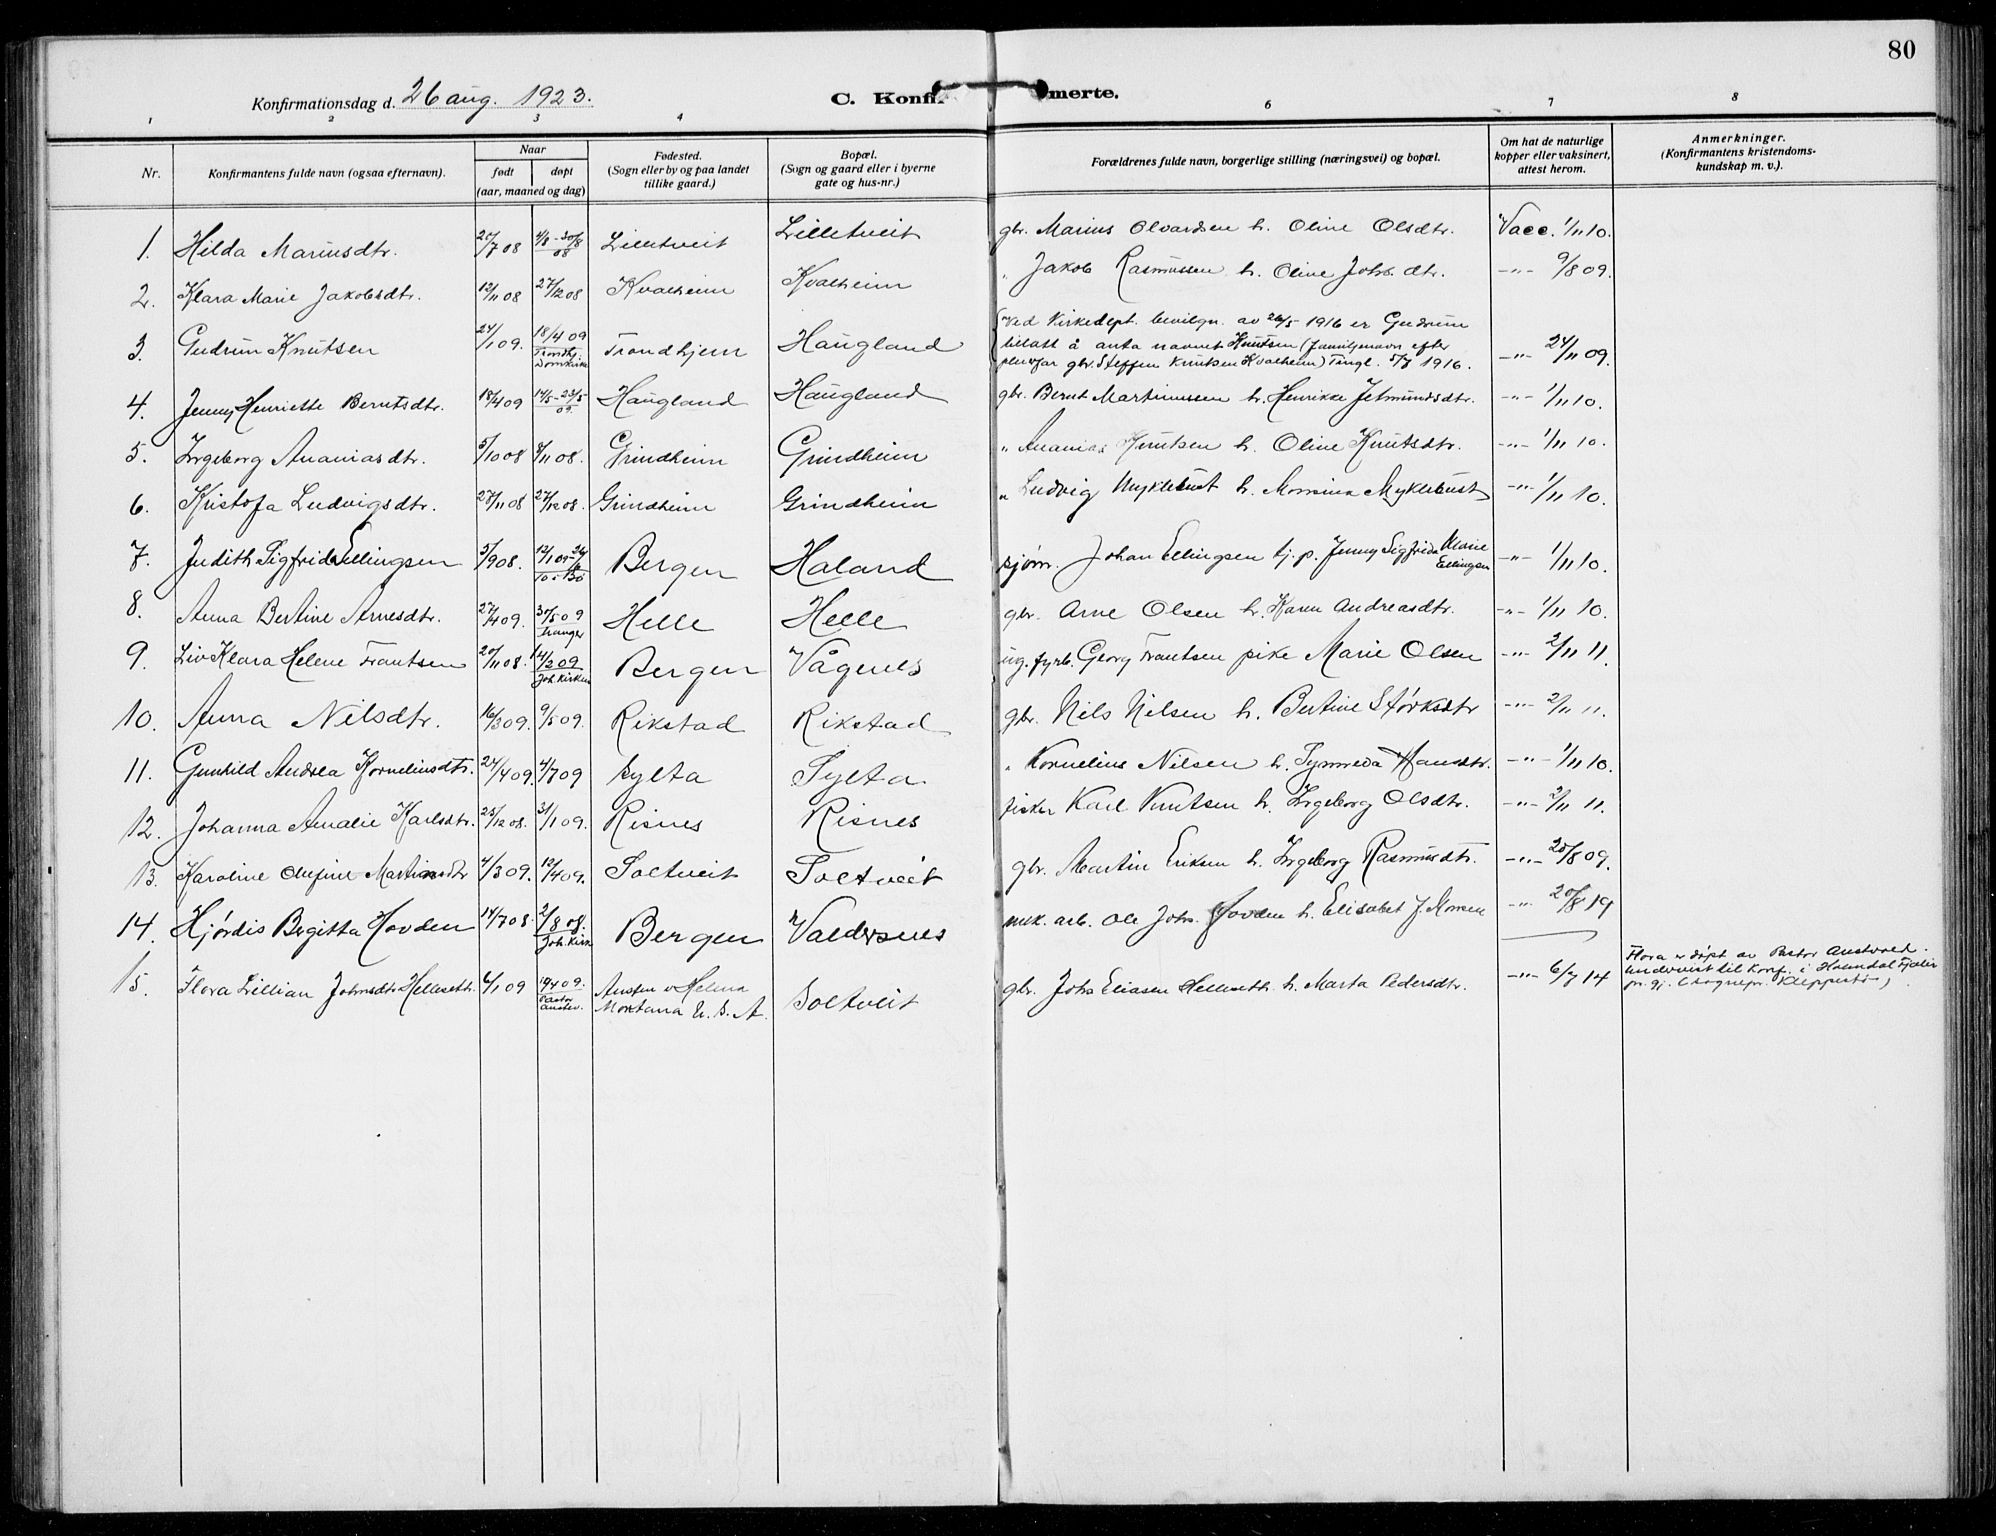 80
Konfirmationsdag d. 26 aug. 1923.
C. Konfir merte.
1 2 3 4 6 7 8
Nr.
Konfirmantens fulde navn (ogsaa efternavn).
Naar
født døpt
(aar, maaned og dag)
Fødested.
(Sogn eller by og paa landet
tillike gaard.)
Bopæl.
(Sogn og gaard eller i byerne
gate og hus-nr.)
Forældrenes fulde navn, borgerlige stilling (næringsvei) og bopæl.
Om hat de naturlige
kopper eller vaksinert,
attest herom.
Anmerkninger.
(Konfirmantens kristendoms-
kundskap m. v.).
1. Hilda Mariusdtr. 20/7 08 4/8-30/8 08 Lilletveit Lilletveit gbr. Marius Olvardsen h. Oline Olsdtr. Vacc. 1/11 10.
2. Klara Marie Jakobsdtr. 12/11 08 27/12 08 Kvalheim Kvalheim " Jakob Rasmussen h. Oline Johs.dtr. -"- 9/8 09.
3. Gudrun Knutsen 24/1 09. 18/4 09 Trondhj. Domkirke Trondhjem Haugland
Ved Kirkedept. bevilgn. av 26/5 1916 er Gudrun
tillatt å anta navnet Knutsen (familienavn efter
pleiefar gbr. Steffen Knutsen Kvalheim) Tingl. 5/7 1916. -"- 24/11 09.
4. Jenny Henriette Berntsdtr. 18/4 09 14/5-23/5 09. Haugland Haugland gbr. Bernt Martinussen h. Henrikke Jetmundsdtr. -"- 1/11 10.
5. Ingeborg Ananiasdtr. 5/10 08 8/11 08. Grindheim Grindheim " Ananias Knutsen h. Oline Knutsdtr. -"- 1/11 10.
6. Kristofa Ludvigsdtr. 28/11 08 27/12 08. Grindheim Grindheim " Ludvig Myklebust h. Monsina Myklebust -"- 1/11 10.
7. Judith Sigfrida Ellingsen 5/9 08. Bergen Haland sjøm. Johan Ellingsen tj. p. Jenny Sigfrida Marie Ellingsen -"- 1/11 10.
8. Anna Bertine Arnesdtr. 27/4 09. 30/5 09 Hanger Helle Helle gbr. Arne Olsen h. Karen Andreasdtr. -"- 1/11 10.
9. Liv Klara Helene Frantsen 20/11 08. 14/2 09 Joh. kirken Bergen Vågenes ug. fyrb. Georg Frantsen pike Marie Olsen -"- 2/11 11.
10. Anna Nilsdtr. 16/3 09. 9/5 09. Rikstad Rikstad gbr. Nils Nilsen h. Bertine Størksdtr -"- 2/11 11.
11. Gunhild Andrea Kornelinsdtr. 24/4 09. 4/7 09 Sylta Sylta " Kornelius Nilsen h. Synneva Hansdtr. -"- 1/11 10.
12. Johanna Amalie Karlsdtr. 25/12 08. 31/1 09. Risnes Risnes fisker Karl Knutsen h. Ingeborg Olsdtr. -"- 2/11 11.
13. Karoline Olufine Martinsdtr 4/3 09. 12/4 09. Soltveit Soltveit gbr. Martin Eriksen h. Ingeborg Rasmusdtr. -"- 20/8 09.
14. Hjørdis Birgitta Hovden 14/7 08. 2/8 08. Joh. kirk Bergen Valdersnes mek. arb. Ole Johs. Hovden h. Elisabet J. Monsen -"- 20/8 19
15. Flora Lillian Johnsdtr Helleseth. 6/1 09 Pastor Austv. v Helena Montana U. S. A. Soltveit gbr. Johs Eliasen Helleseth h. Marta Pedersdtr. -"- 6/7 14
Flora er døpt av Pastor Austvold.
undervist til konf. i Holmdal Fjaler
pr. gj. (sognepr. Kleppestø)